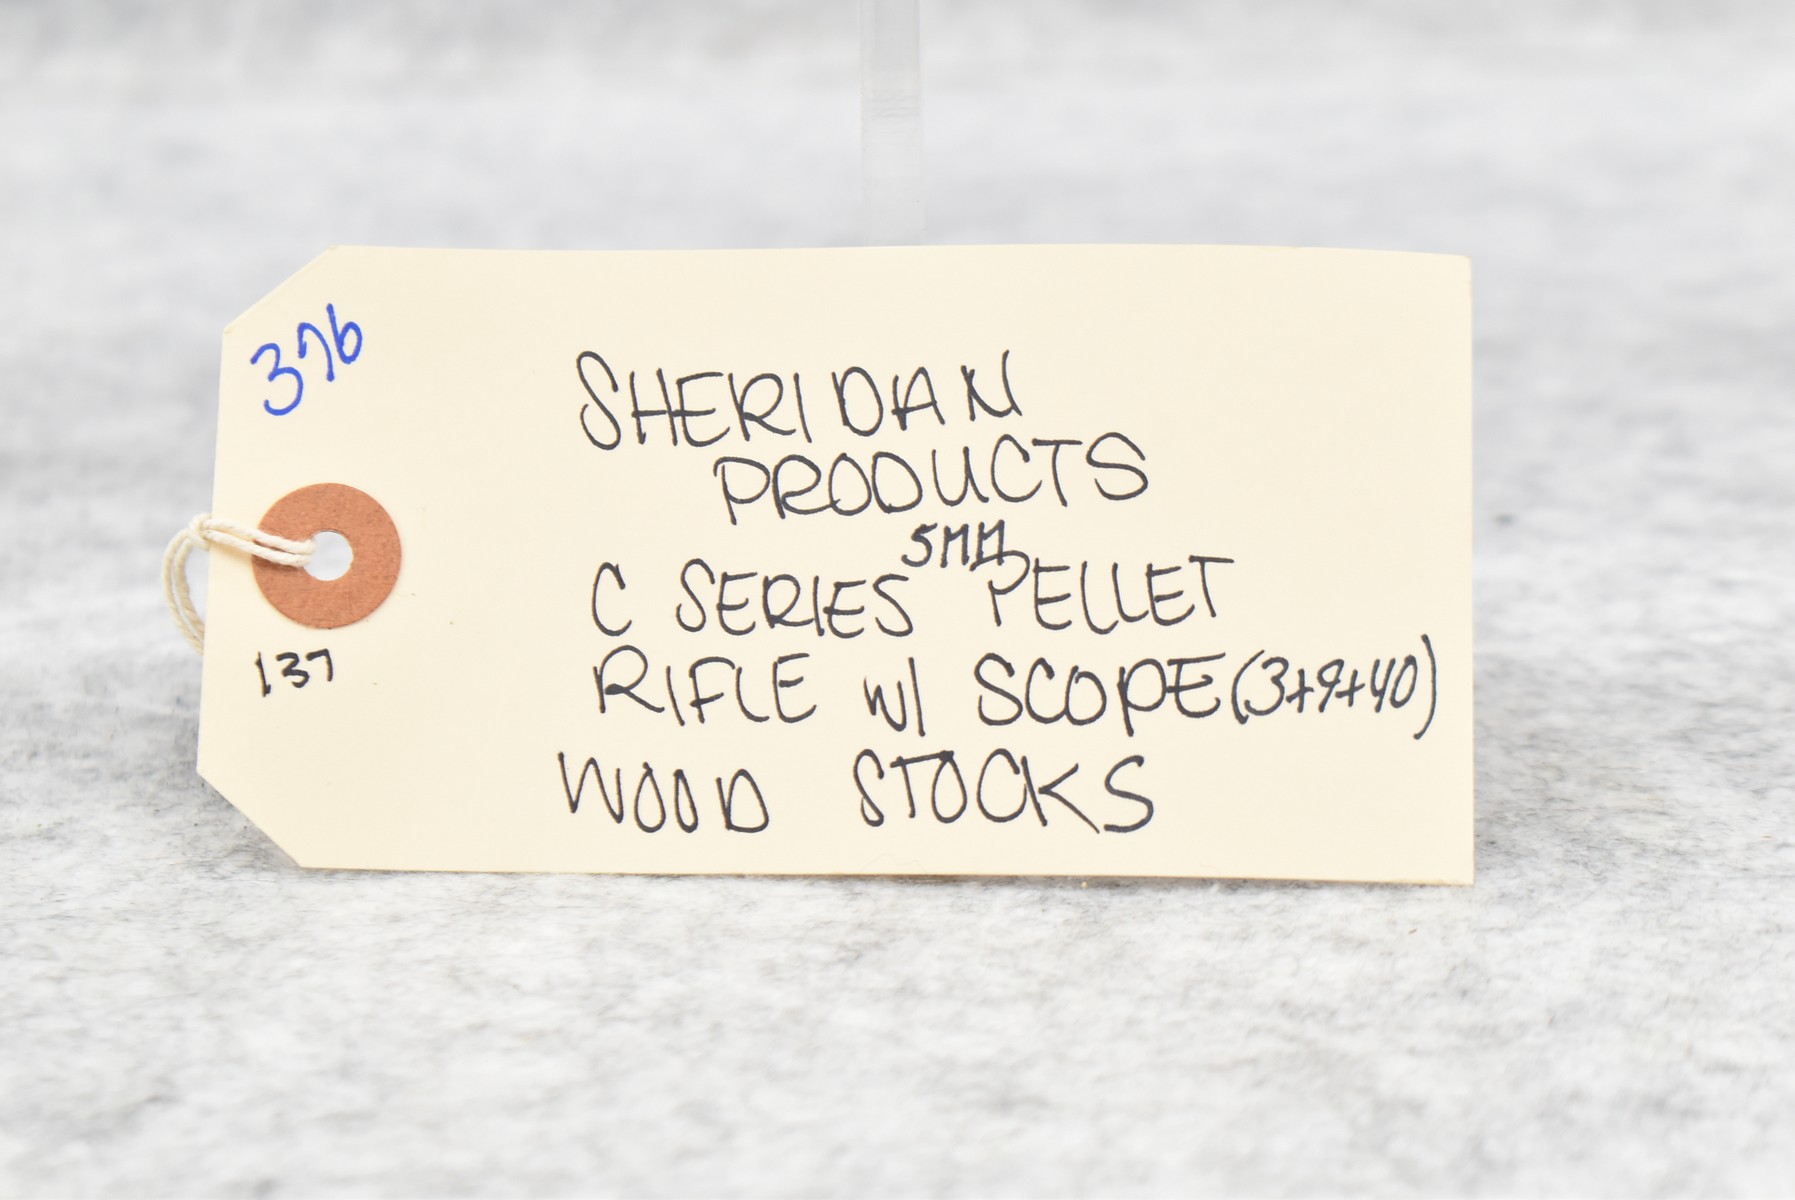 376
137
SHERIDAN
PRODUCTS
5MM
C SERIES PELLET
RIFLE W/ SCOPE (3+9+40)
WOOD STOCKS